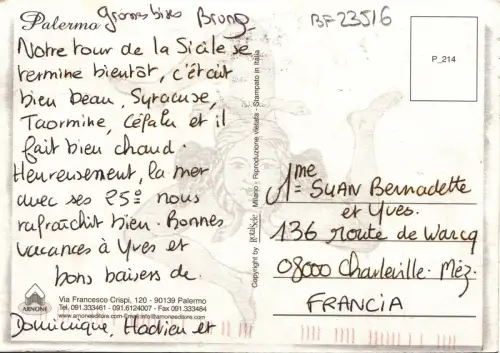 Palermo grosses bises Bruno
BF23516
Notre tour de la Sicile se
termine bientôt, c'était
bien beau, Syracuse,
Taormine, Céfalu et il
fait bien chaud.
Heureusement, la mer
avec ses 25° nous
rafraîchit bien. Bonnes
vacances à Yves et
bons baisers de
Dominique, Hadrien et
P_214
Mme SUAN Bernadette
et Yves.
136 route de Warcq
08000 Charleville-Méz.
FRANCIA
Copyright by Milano - Riproduzione vietata - Stampato in Italia
ARNONE
Via Francesco Crispi, 120 - 90139 Palermo
Tel. 091.333461 - 091.6124007 - Fax 091.333484
www.arnoneeditore.com-Email:info@arnoneeditore.com